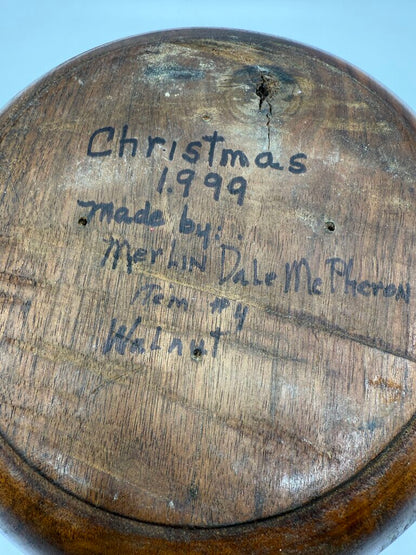 Christmas
1999
made by:
Merlin Dale McPheron
Item #4
Walnut